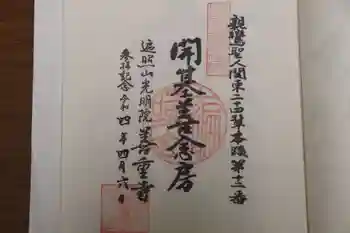 親鸞聖人関東二十四輩本跡第十二番
開基善念房
遍照山光明院善重寺
参拝記念令和四年四月六日